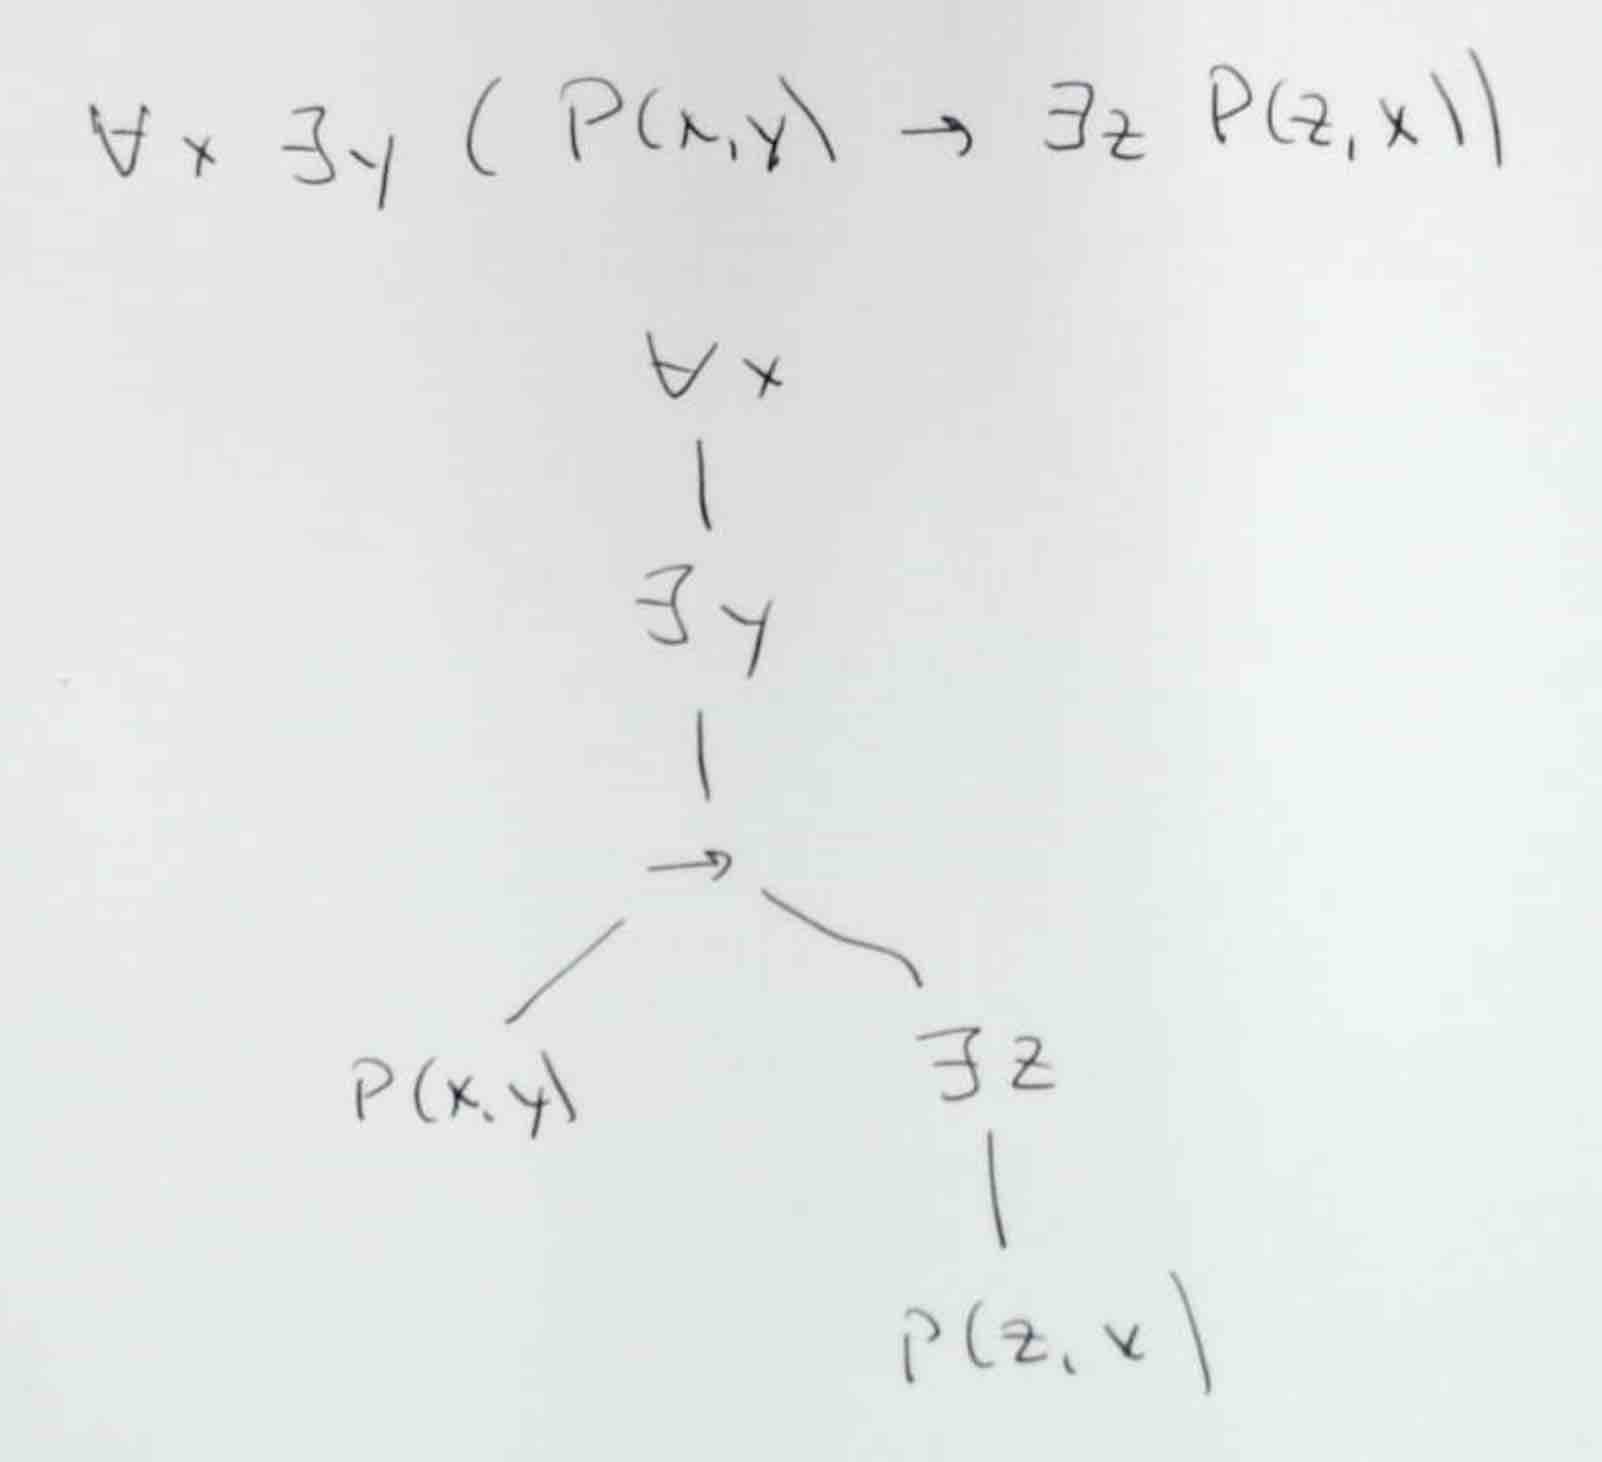 ∀x ∃y ( P(x,y) → ∃z P(z,x))
∀x
∃y
→
P(x,y) ∃z
P(z,x)